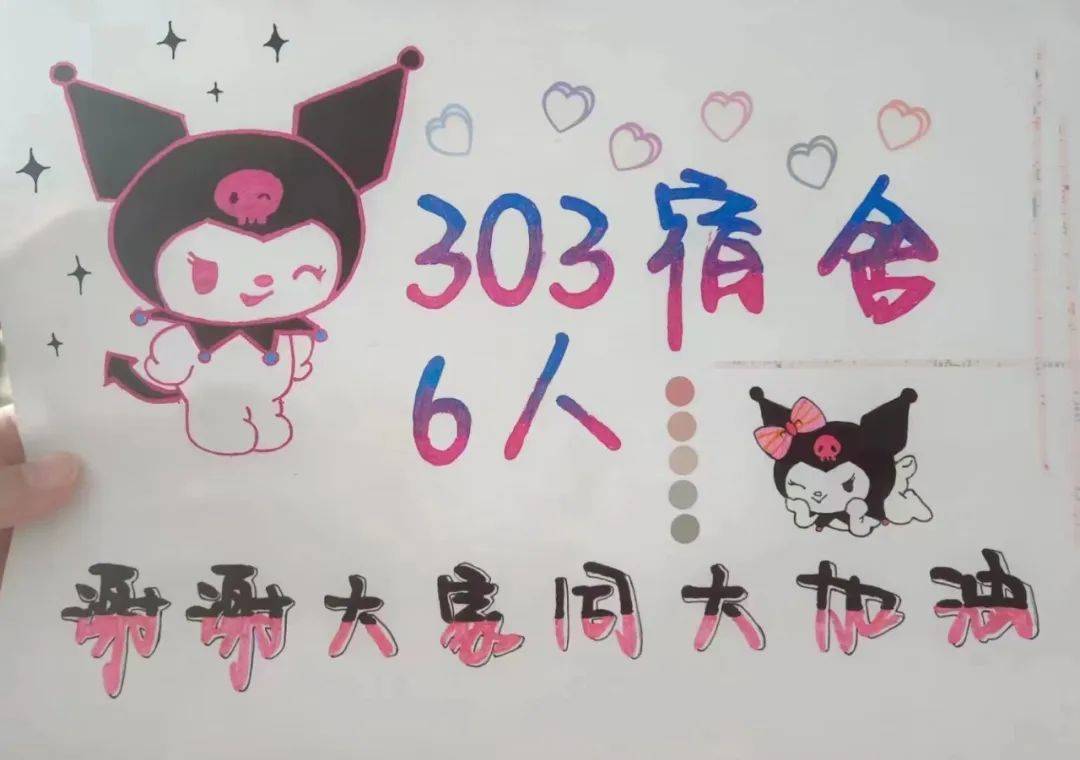 303宿舍
6人
谢谢大家同大加油